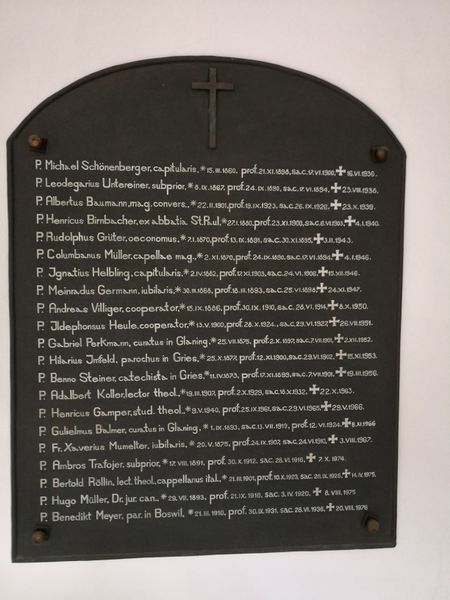 P. Michael Schönenberger, capitularis, * 15.III.1860. prof. 21.XI.1898, sac. 17.VI.1900, ✝ 16.VI.1938.
P. Leodegarius Unternerer, subprior, * 8.IX.1867, prof. 24.IX.1890, sac. 17.VI.1894, ✝ 23.VIII.1938.
P. Albertus Baumann, mag. convers., * 22.II.1901, prof. 19.IX.1923, sac. 26.IX.1926, ✝ 23.X.1939.
P. Henricus Birnbacher, ex abbatia St. Rul. * 27.I.1880, prof. 23.XI.1903, sac. 6.VI.1903, ✝ 4.I.1940.
P. Rudolphus Grüter, oeconomus, * 7.I.1870, prof. 13.IX.1891, sac. 30.XI.1895, ✝ 3.II.1943.
P. Columbanus Müller, capellae mag., * 2.XI.1870, prof. 24.IX.1890, sac. 17.VI.1894, ✝ 4.I.1946.
P. Ignatius Helbling, capitularis, * 2.IV.1882, prof. 17.XI.1903, sac. 24.VI.1908, ✝ 15.XII.1946.
P. Meinradus Germann, iubilaris, * 30.III.1868, prof. 18.III.1893, sac. 25.VI.1898, ✝ 24.XI.1947.
P. Andreas Villiger, cooperator, * 15.IX.1886, prof. 30.IX.1910, sac. 28.VI.1914, ✝ 8.X.1950.
P. Ildephonsus Heule, cooperator, * 13.V.1900, prof. 28.X.1924, sac. 29.VI.1927, ✝ 26.VII.1951.
P. Gabriel Perkmann, curatus in Glaning, * 25.VII.1875, prof. 2.X.1897, sac. 7.VII.1901, ✝ 2.XII.1952.
P. Hilarius Imfeld, parochus in Gries, * 25.X.1877, prof. 12.XI.1900, sac. 29.VI.1902, ✝ 15.XI.1953.
P. Benno Steiner, catechista in Gries, * 11.IV.1873, prof. 17.XI.1899, sac. 7.VII.1901, ✝ 19.III.1956.
P. Adalbert Koller, lector theol., * 19.III.1907, prof. 2.X.1929, sac. 18.X.1932, ✝ 22.X.1963.
P. Henricus Gamper, stud. theol., * 9.V.1940, prof. 25.IX.1961, sac. 29.VI.1965, ✝ 29.V.1966.
P. Gulielmus Balmer, curatus in Glaning, * 1.IX.1893, sac. 13.VII.1919, prof. 12.VI.1924, ✝ 8.XI.1966
P. Fr. Xaverius Mumelter, iubilaris, * 20.V.1875, prof. 24.IX.1907, sac. 24.VI.1910, ✝ 3.VIII.1967.
P. Ambros Trafojer, subprior, * 17.VII.1891, prof. 30.X.1912, sac. 28.VI.1916, ✝ 7.X.1974.
P. Bertold Röllin, lect. theol., cappellanus ital., * 21.III.1901, prof. 10.X.1923, sac. 26.IX.1926, ✝ 14.IV.1975.
P. Hugo Müller, Dr. jur. can., * 29.VII.1893, prof. 21.IX.1916, sac. 3.IV.1920, ✝ 8.VIII.1975
P. Benedikt Meyer, par. in Boswil, * 21.III.1910, prof. 30.IX.1931, sac. 28.VI.1936, ✝ 20.VIII.1976